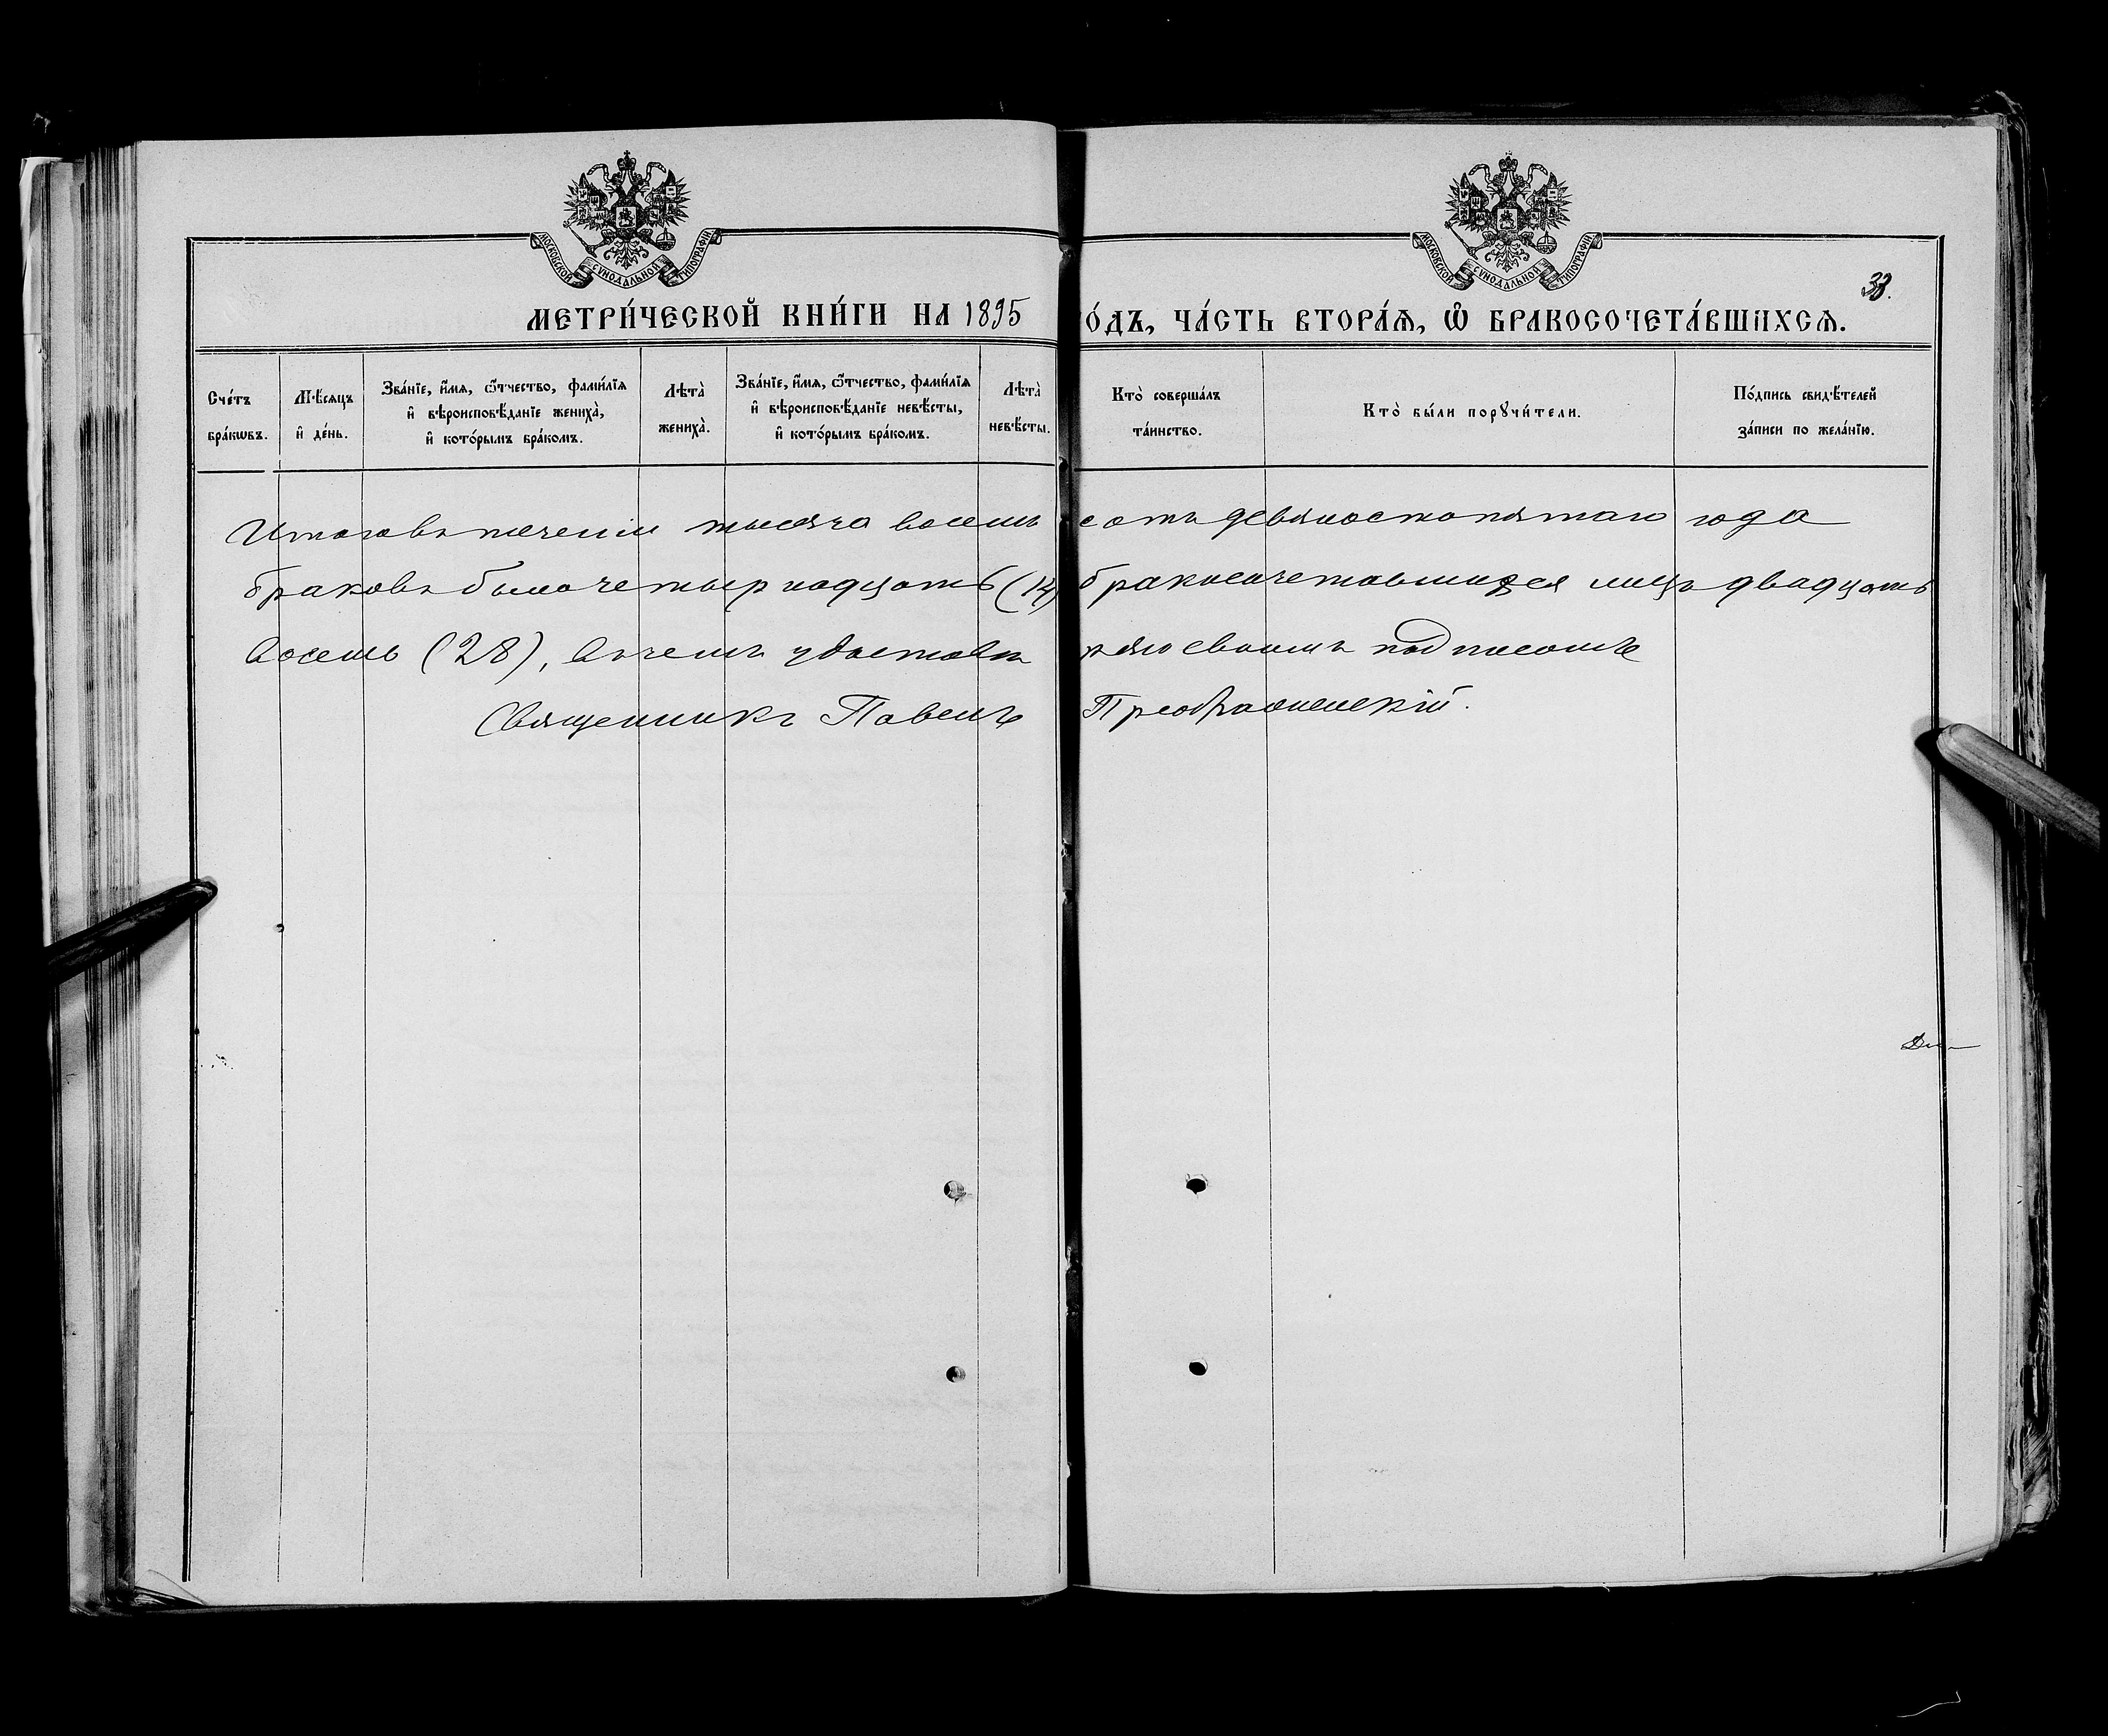 МОСКОВСКОЙ СѴНОДАЛЬНОЙ ТИПОГРАФІИ
МОСКОВСКОЙ СѴНОДАЛЬНОЙ ТИПОГРАФІИ
33.
МЕТРИ́ЧЕСКОЙ КНИ́ГИ НА 1895 О́ДЪ, ЧА́СТЬ ВТОРА́Ѧ, Ѽ БРАКОСОЧЕТА́ВШИХСѦ.
Сче́тъ бра́кѡвъ.
Мѣ́сѧцъ и҆ де́нь.
Зва́нїе, и҆́мѧ, ѻ҆́тчество, фами́лїѧ и҆ вѣроисповѣ́данїе жениха̀, и҆ кото́рымъ бра́комъ.
Лѣта̀ жениха̀.
Зва́нїе, и҆́мѧ, ѻ҆́тчество, фами́лїѧ и҆ вѣроисповѣ́данїе невѣ́сты, и҆ кото́рымъ бра́комъ.
Лѣта̀ невѣ́сты.
Кто̀ соверша́лъ та́инство.
Кто̀ бы́ли порꙋчи́тели.
По́дпись свидѣ́телей за́писи по жела́нїю.
Итого въ теченіи тысяча восемь сотъ девяносто пятаго года
браковъ было четырнадцать (14) бракосочетавшихся лицъ двадцать
восемь (28), въ чемъ удостовѣряю своимъ подписомъ
Священникъ Павелъ Преображенскій.